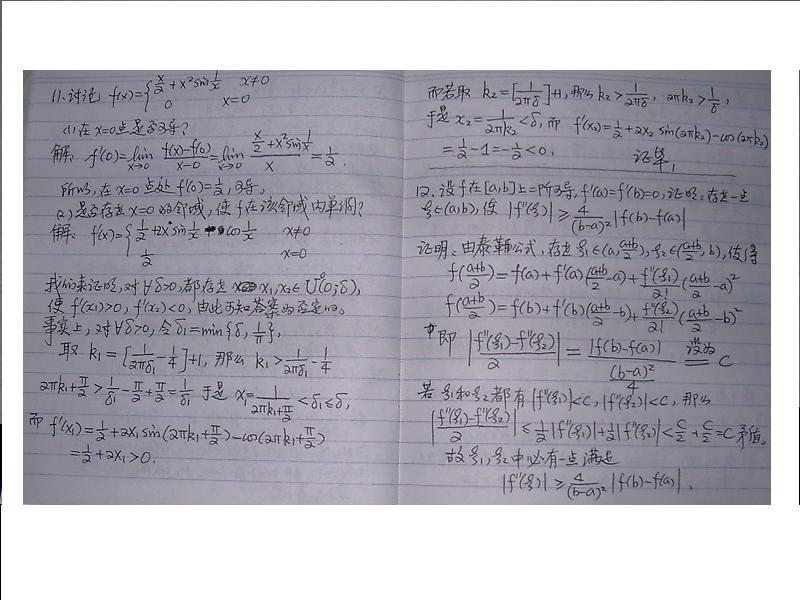 11.讨论 f(x)={x/2+x²sin1/x x≠0
0 x=0
(1)在x=0点是否可导?
解: f'(0)=lim x→0 (f(x)-f(0))/(x-0)=lim x→0 (x/2+x²sin1/x)/x=1/2.
所以,在x=0点处f'(0)=1/2,可导。
(2)是否存在x=0的邻域,使f在该邻域内单调?
解: f'(x)={1/2+2xsin1/x-cos1/x x≠0
1/2 x=0
我们来证明,对∀δ>0,都存在x₁,x₂∈U⁰(0;δ),
使f'(x₁)>0,f'(x₂)<0,由此可知答案为否定的。
事实上,对∀δ>0,令δ₁=min{δ,1/π},
取k₁=[1/2πδ₁-1/4]+1,那么k₁>1/2πδ₁-1/4
2πk₁+π/2>1/δ₁-π/2+π/2=1/δ₁ 于是x₁=1/(2πk₁+π/2)<δ₁≤δ,
而f'(x₁)=1/2+2x₁sin(2πk₁+π/2)-cos(2πk₁+π/2)
=1/2+2x₁>0.
而若取k₂=[1/2πδ]+1,那么k₂>1/2πδ, 2πk₂>1/δ,
于是x₂=1/2πk₂<δ,而f'(x₂)=1/2+2x₂sin(2πk₂)-cos(2πk₂)
=1/2-1=-1/2<0. 证毕
12.设f在[a,b]上二阶可导,f'(a)=f'(b)=0,证明:存在一点
ξ∈(a,b),使|f''(ξ)|≥4/(b-a)²|f(b)-f(a)|
证明:由泰勒公式,存在ξ₁∈(a,(a+b)/2),ξ₂∈((a+b)/2,b),使得
f((a+b)/2)=f(a)+f'(a)((a+b)/2-a)+f''(ξ₁)/2!((a+b)/2-a)²
f((a+b)/2)=f(b)+f'(b)((a+b)/2-b)+f''(ξ₂)/2!((a+b)/2-b)²
即 |(f''(ξ₁)-f''(ξ₂))/2|=|f(b)-f(a)|/((b-a)²/4) 设为= C
若ξ₁和ξ₂都有|f''(ξ₁)|<C,|f''(ξ₂)|<C,那么
|(f''(ξ₁)-f''(ξ₂))/2|≤1/2|f''(ξ₁)|+1/2|f''(ξ₂)|<C/2+C/2=C矛盾。
故ξ₁,ξ₂中必有一点满足
|f''(ξ)|≥4/(b-a)²|f(b)-f(a)|.